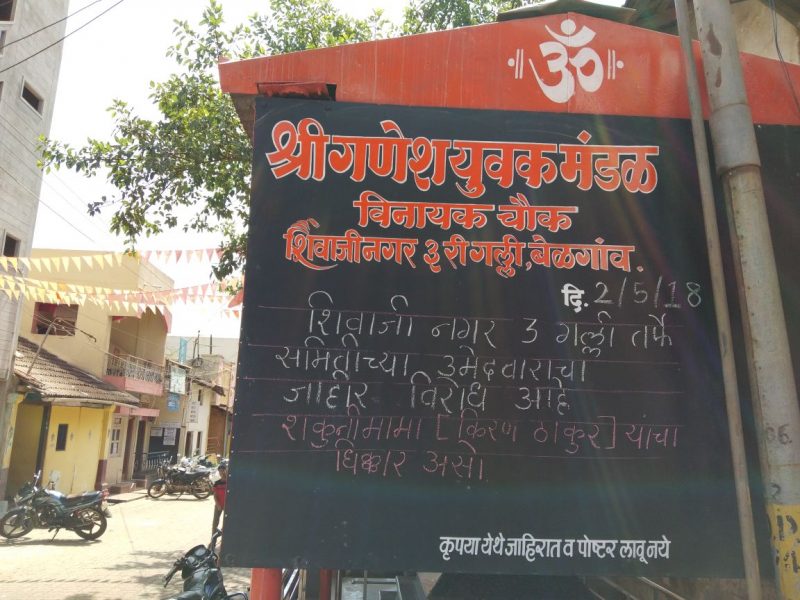 ॐ
श्री गणेश युवक मंडळ
विनायक चौक
शिवाजीनगर ३ री गल्ली, बेळगांव.
दि. 2/5/18
शिवाजी नगर 3 गल्ली तर्फे
समितीच्या उमेदवाराचा
जाहीर विरोध आहे
शकुनीमामा [किरण ठाकुर] यांचा
धिक्कार असो.
कृपया येथे जाहिरात व पोष्टर लावू नये